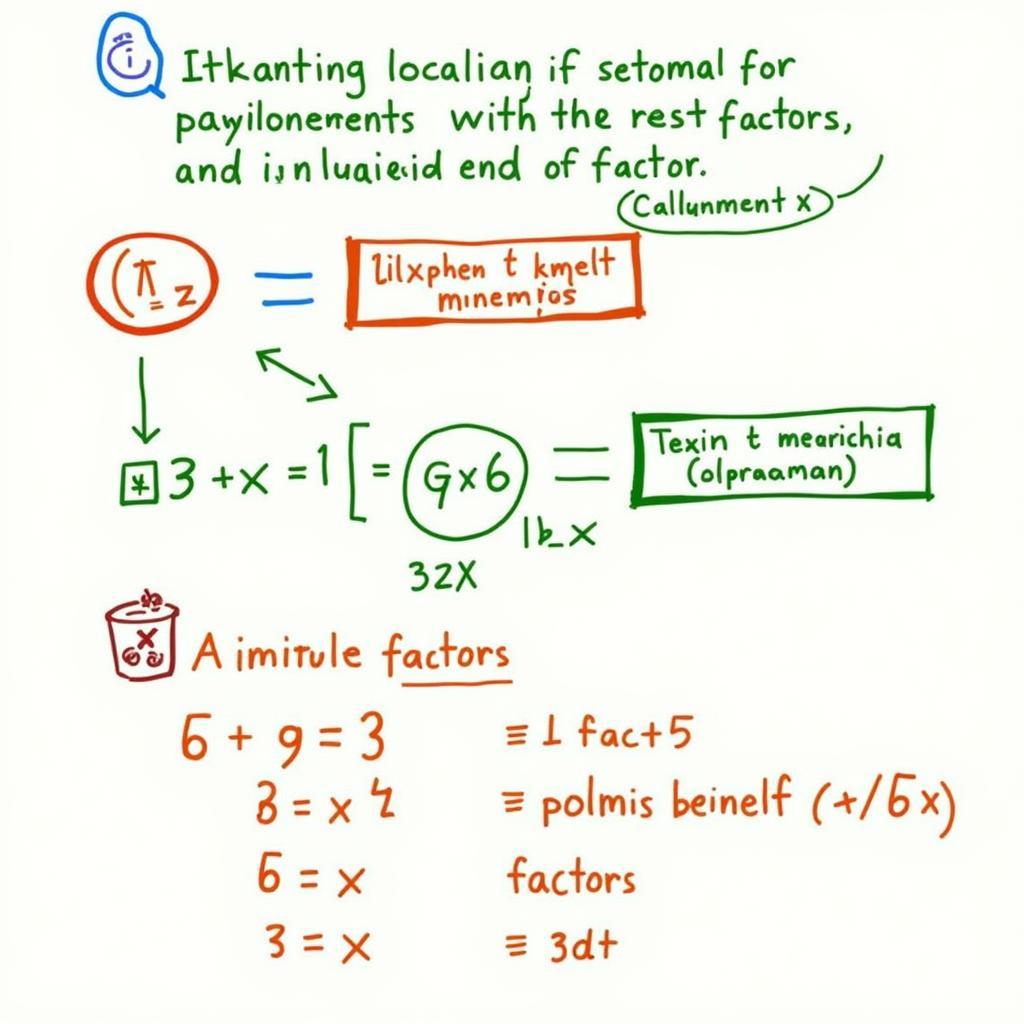 Itkanting localian if setomal for
payilonements with the rest factors,
and end of factor.
(Callunment x)
= Lilxphen t kmelt
minemios
3 + x = 1 [ = Gx6 = Texin t mearichia
(olpraaman)
32X
A imirule factors
6 + 9 = 3 ≡ 1 fact5
3 = x ≡ polmis beinelf (+/5x)
6 = x factors
3 = x ≡ 3dt